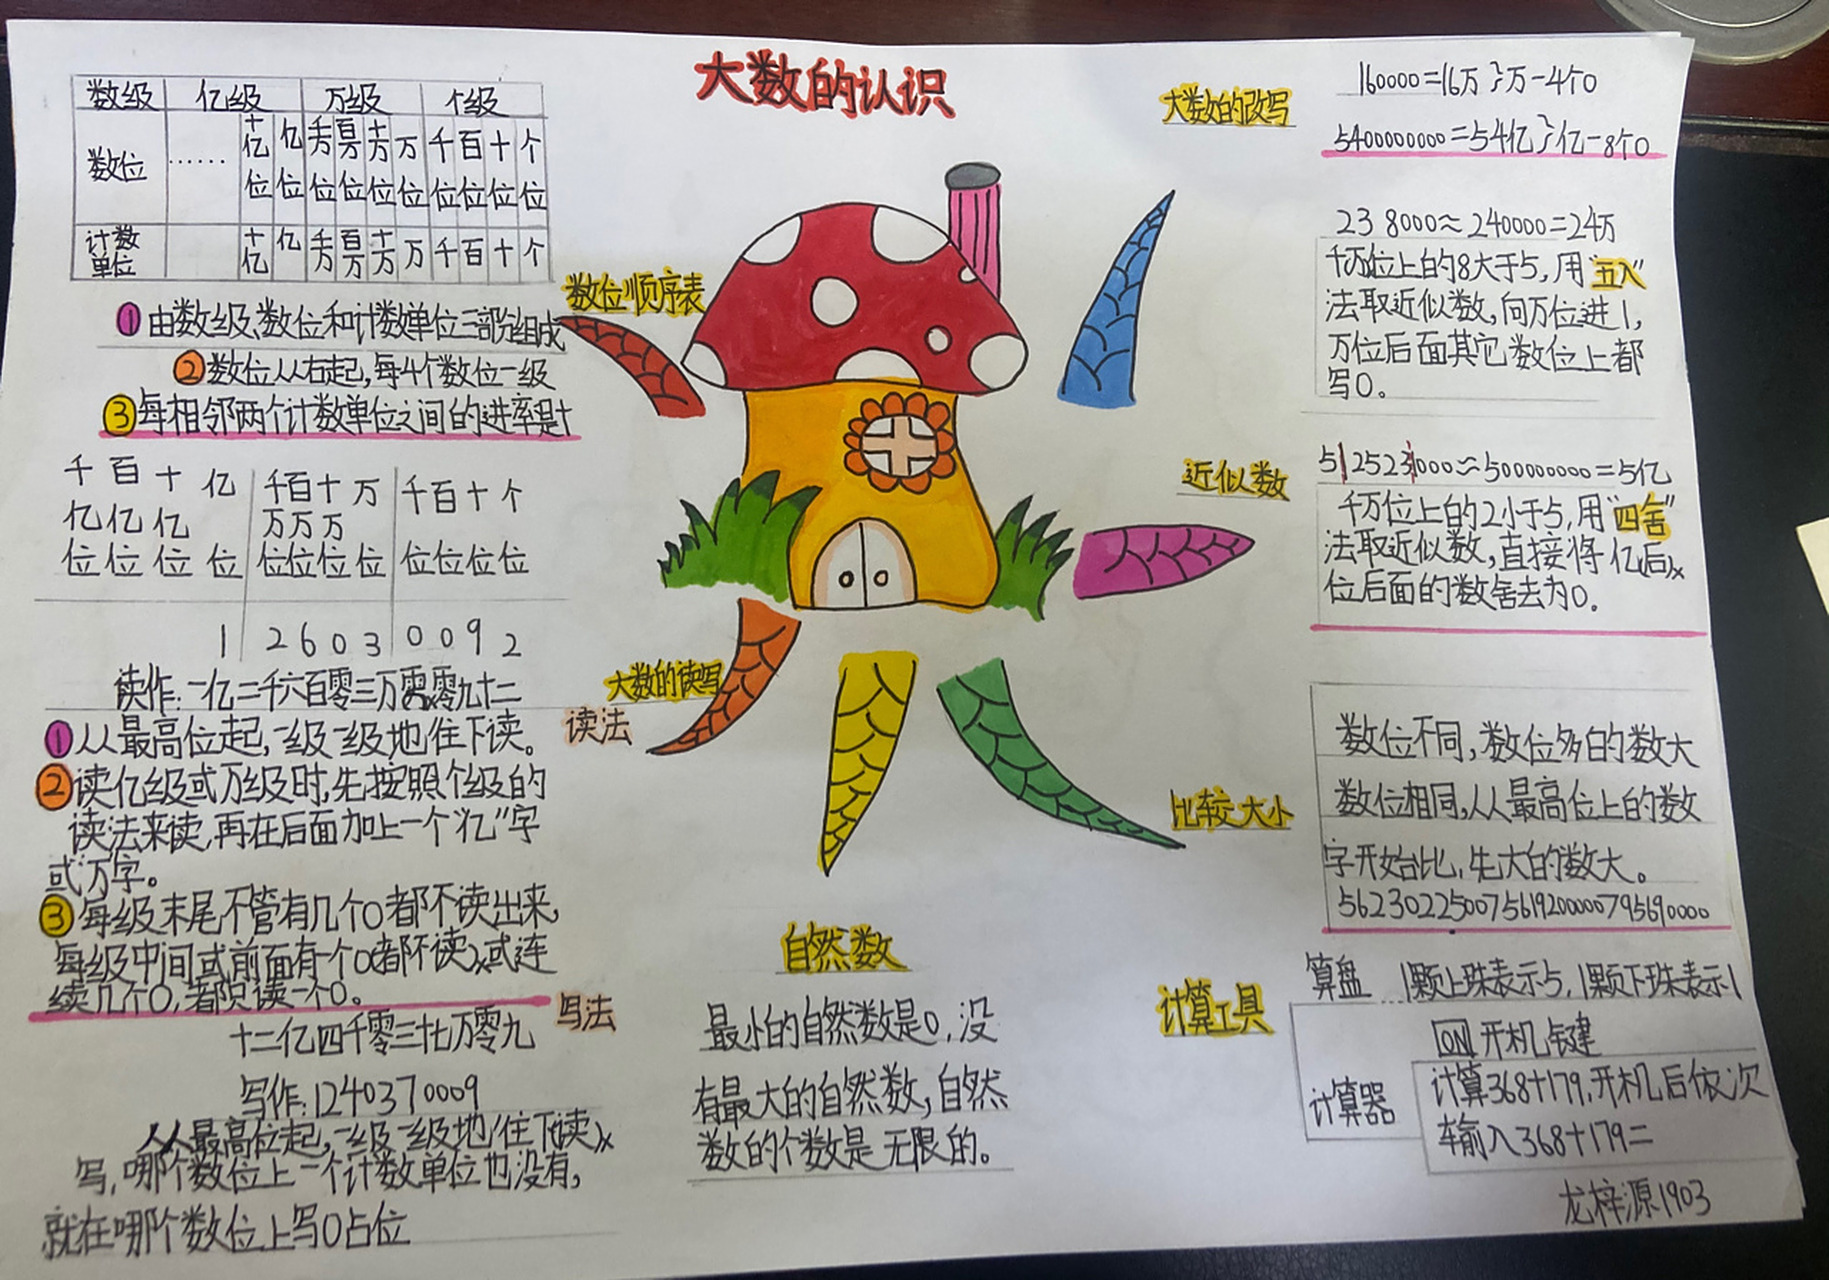 大数的认识
数级 亿级 万级 个级
数位 …… 十亿位 亿位 千万位 百万位 十万位 万位 千位 百位 十位 个位
计数单位 十亿 亿 千万 百万 十万 万 千 百 十 个
数位顺序表
①由数级、数位和计数单位三部分组成
②数位从右起,每4个数位一级
③每相邻两个计数单位之间的进率是十
千 百 十 亿 千百十万 千百十个
亿亿亿 万万万
位位位位 位位位位 位位位位
1 2603 0092
大数的读写
读作:一亿二千六百零三万零零九十二
读法
①从最高位起,一级一级地住下读。
②读亿级或万级时,先按照个级的
读法来读,再在后面加上一个“亿”字
或万字。
③每级末尾不管有几个0都不读出来,
每级中间或前面有一个0都不读或连
续几个0,都只读一个0。
写法
十二亿四千零三十七万零九
写作:1240370009
从最高位起,一级一级地住下读
写,哪个数位上一个计数单位也没有,
就在哪个数位上写0占位
自然数
最小的自然数是0,没
有最大的自然数,自然
数的个数是无限的。
大数的改写
160000=16万}万-4个0
5400000000=54亿}亿-8个0
近似数
238000≈240000=24万
千万位上的8大于5,用“五入”
法取近似数,向万位进1,
万位后面其它数位上都
写0。
512523000≈500000000=5亿
千万位上的2小于5,用“四舍”
法取近似数,直接将亿后
位后面的数舍去为0。
比较大小
数位不同,数位多的数大
数位相同,从最高位上的数
字开始比,先大的数大。
562302250075619200000795690000
计算工具
算盘 1颗上珠表示5,1颗下珠表示1
计算器
ON 开机键
计算368+179,开机后依次
输入368+179=
龙梓源1903